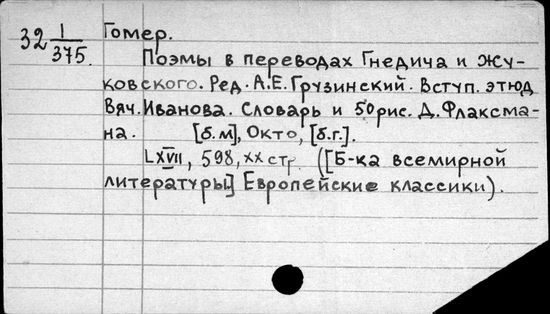 32 1/375. Гомер.
Поэмы в переводах Гнедича и Жу-
ковского. Ред. А.Е. Грузинский. Вступ. этюд
Вяч. Иванова. Словарь и 50 рис. Д. Флаксма-
на. [б.м], Окто, [б.г.].
LXVII, 598, XX стр. ([Б-ка всемирной
литературы] Европейские классики).